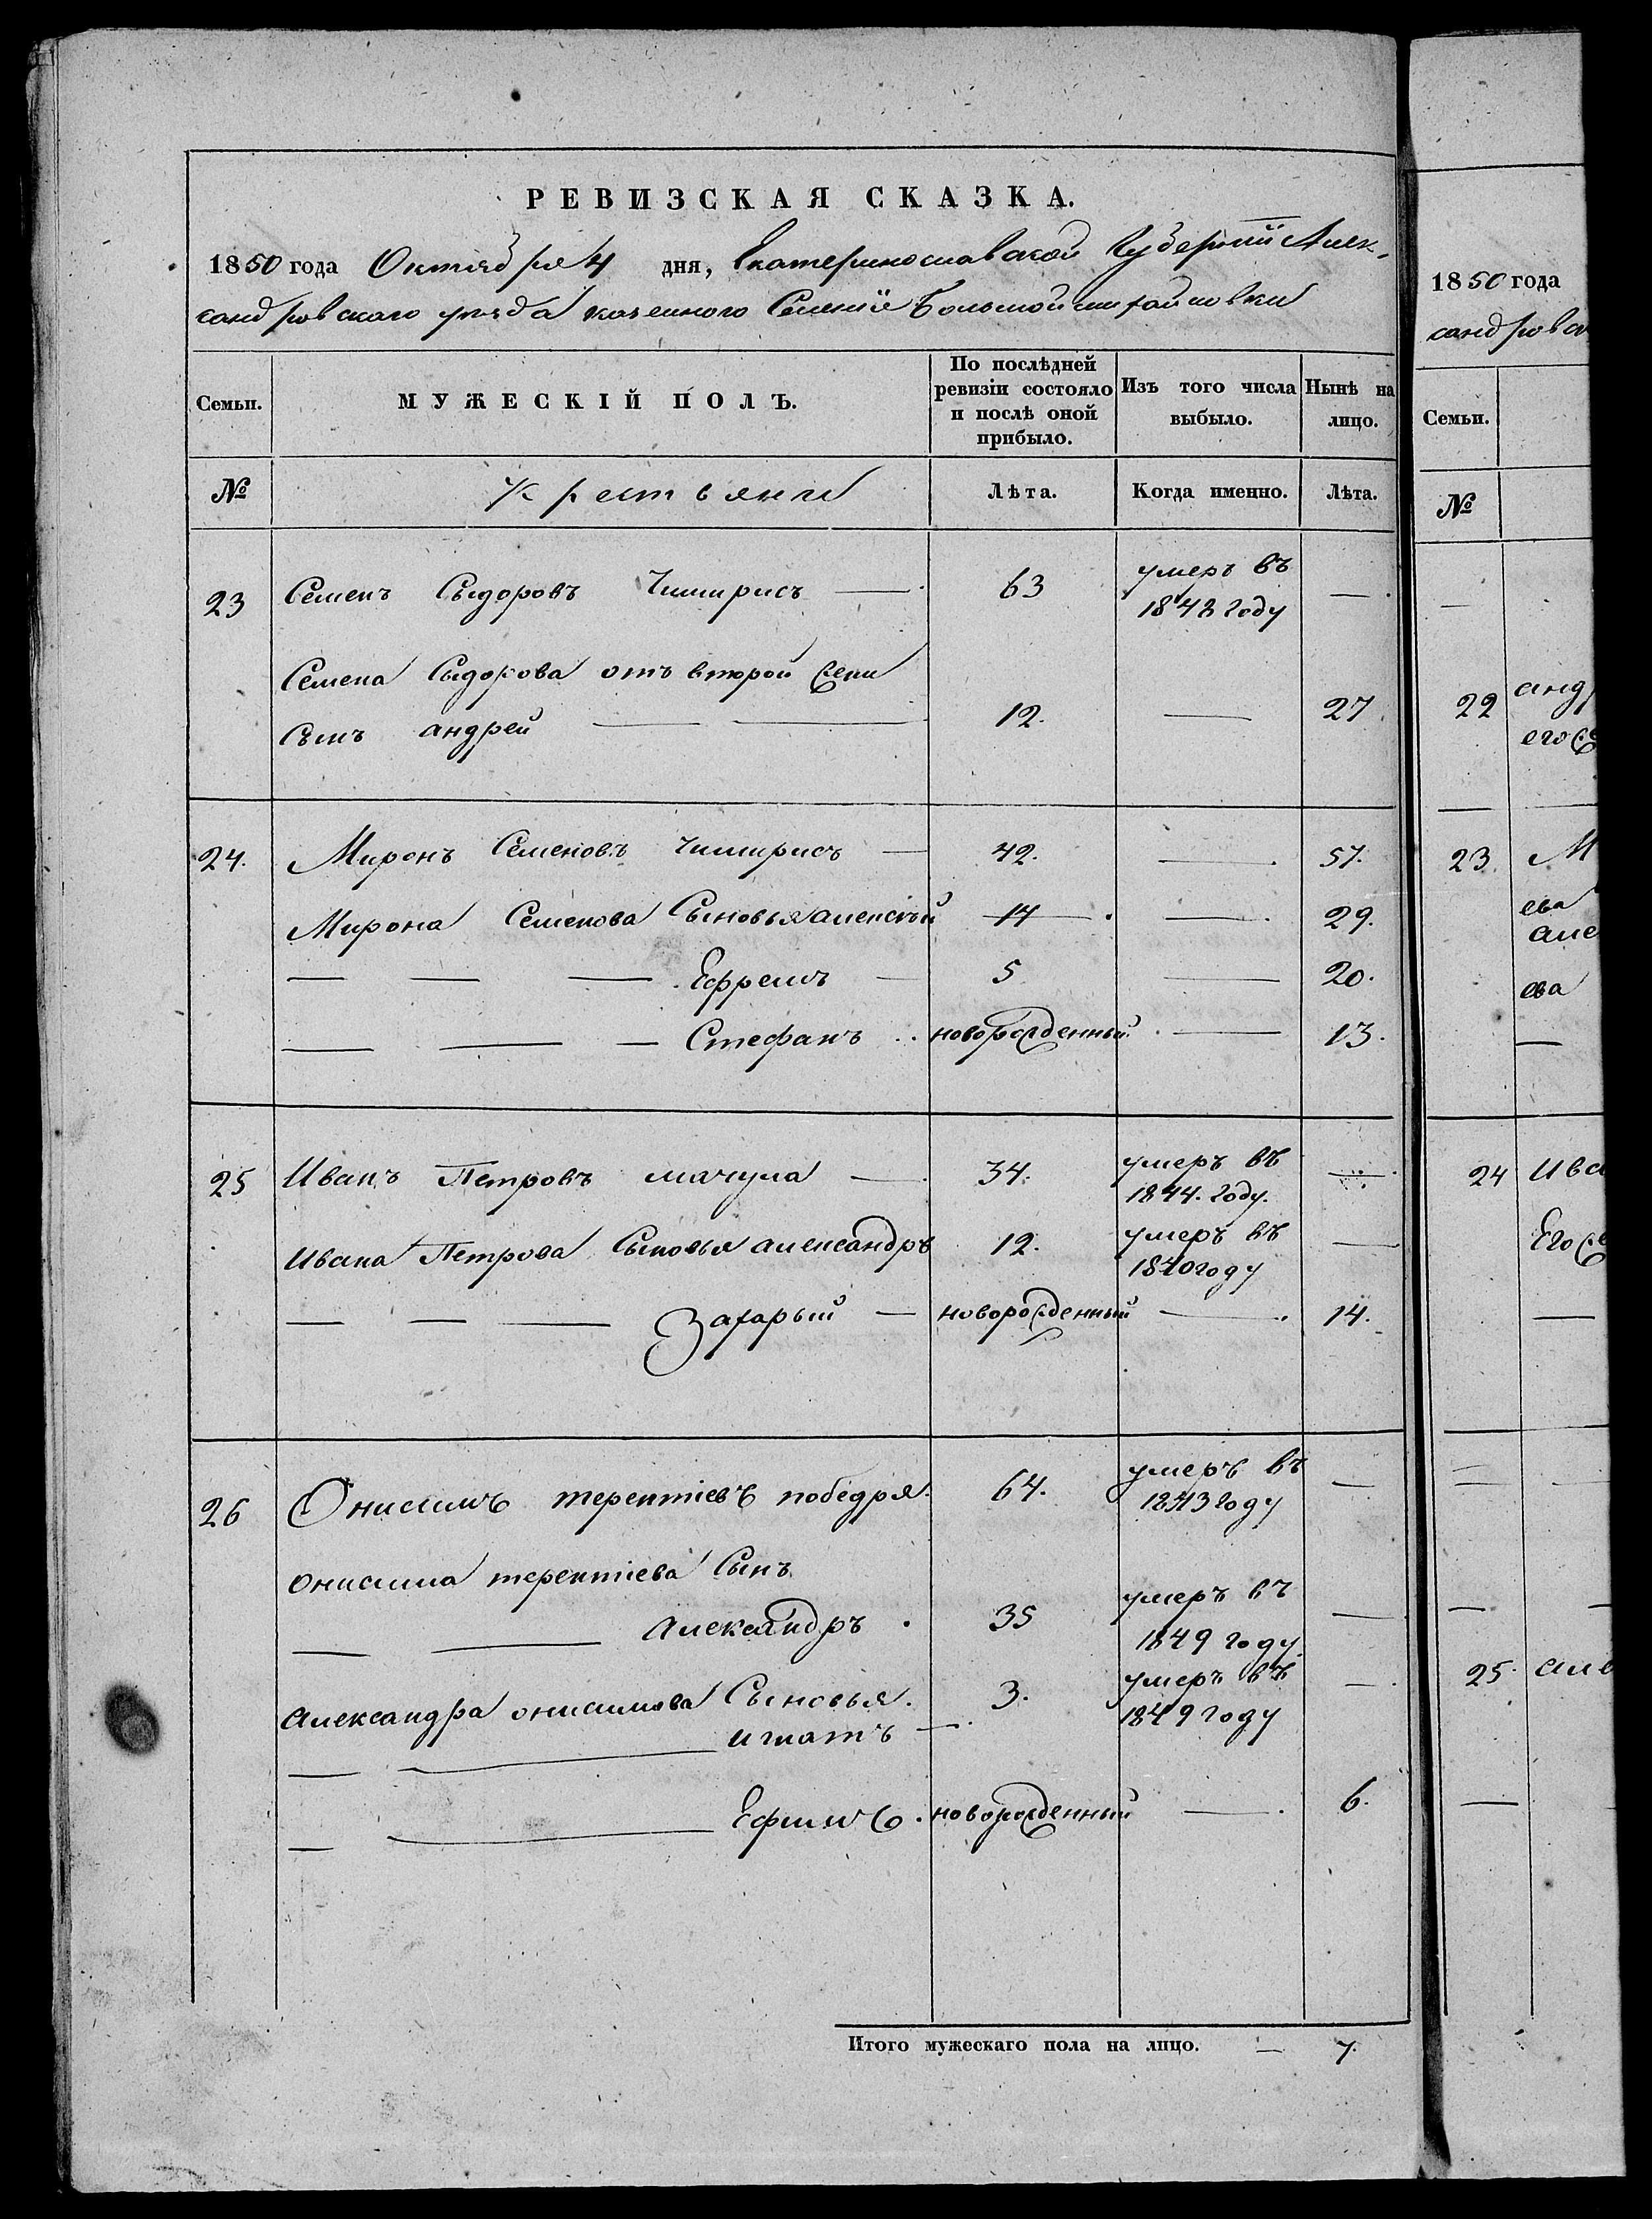 РЕВИЗСКАЯ СКАЗКА.
1850 года Октября 4 дня, Екатеринославской Губернии Алек-
сандровского уезда казенного Селения Большой михайловки
Семьи. МУЖЕСКІЙ ПОЛЪ. По послѣдней ревизіи состояло и послѣ оной прибыло. Изъ того числа выбыло. Нынѣ на лицо.
№ Крестьяне Лѣта. Когда именно. Лѣта.
23 Семенъ Сыдоровъ Чимирисъ — 63 умеръ въ 1848 году —
Семена Сыдорова отъ второй жены
Сынъ андрей — 12. — 27
24. Миронъ Семеновъ Чимирисъ — 42. — 57.
Мирона Семенова Сыновья алексъй 14 — 29.
— — — Ефремъ — 5 — 20.
— — — Стефанъ новорожденный — 13.
25 Иванъ Петровъ мачула — 34. умеръ въ 1844. году. —
Ивана Петрова Сыновья александръ 12. умеръ въ 1840 году —
— — — Захарый — новорожденный — 14.
26 Онисимъ терентіевъ побѣдря. 64. умеръ въ 1843 году —
онисима терентіева Сынъ
— — Александръ 35 умеръ въ 1849 году —
Александра онисимова Сыновья.
игнатъ — 3. умеръ въ 1849 году —
— — Ефимъ. новорожденный — 6.
Итого мужескаго пола на лицо. — 7.
1850 года
сандровск
Семьи.
№
22 анд
его же
23 М
ева
але
ева
24 Ива
Его же
25. але